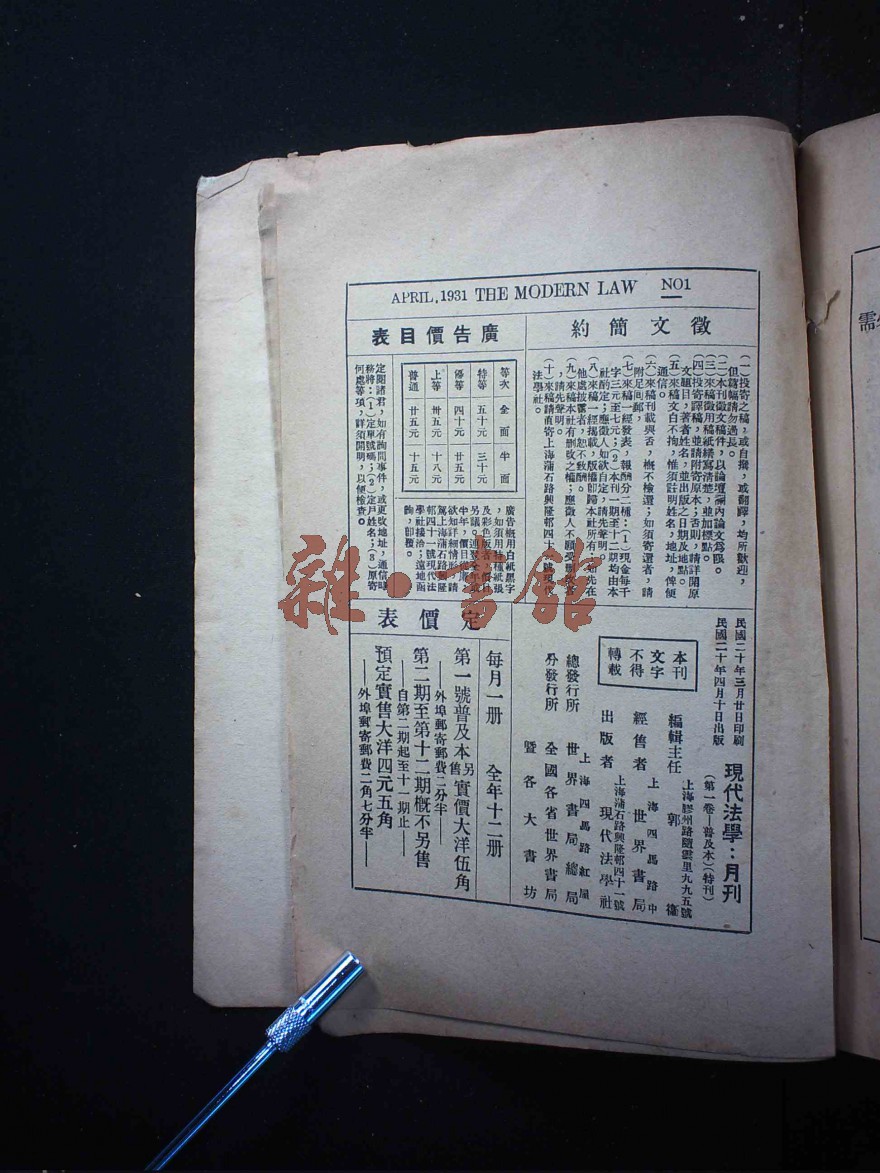 APRIL, 1931 THE MODERN LAW NO1
徵文簡約
(一)投寄之稿,或自撰,或翻譯,均所歡迎,
但篇幅請勿過長。
(二)本刊徵文稿件,以論壇欄內論文爲限。
(三)來稿徵用稿紙繕寫清楚,並加標點。
(四)投寄譯稿,並請附寄原本;否則,請詳開原
文題目,著者姓名,並出版之日期及地點。
(五)來稿文白不拘,惟須註明姓名,地址,俾便
通信。
(六)來稿刊載與否,概不檢還;如須寄還者,請
附足回郵,
(七)來稿一經發表,報酬分二種:(1)現金每千
字三元至七元;(2)本刊一期至十二期均由本
社酌定;應徵人如欲自定,請先聲明。
(八)來稿一經揭載,版權即歸本社所有,如先在
他處披露者,恕不致酬。
(九)來稿本社有刪改之權;應徵人不願受刪改者
,請先聲明。
(十)來稿請直寄上海蒲石路興隆邨四十一號現代
法學社。
廣告價目表
等次 全面 半面
特等 五十元 三十元
優等 四十元 廿五元
上等 卅五元 十八元
普通 廿五元 十五元
廣告概用白紙黑字
,如須用特種紙張
及彩色版者,價目
另議。連登全年或
半年,價目從廉。
欲知詳細情形,請
駕上海蒲石路興隆
邨四十一號現代法
學社接洽;遠地函
詢,即覆。
定閱諸君,如有詢問事件,或更改地址,通信時
務將:(1)定單號碼;(2)定戶姓名;(3)原寄
何處等項,詳須開明,以便檢查。
民國二十年三月廿日印刷
民國二十年四月十日出版
現代法學:月刊
(第一卷—普及本)(特刊)
本刊
文字
不得
轉載
上海膠州路隨雲里九九五號
編輯主任 郭衞
上海四馬路中
經售者 世界書局
上海蒲石路興隆邨四十一號
出版者 現代法學社
上海四馬路紅屋
總發行所 世界書局總局
分發行所 全國各省世界書局
暨各大書坊
定價表
每月一册 全年十二册
第一號普及本另售實價大洋伍角
——外埠郵寄郵費二分半——
第二期至第十二期概不另售
——自第二期起至十一期止——
預定實售大洋四元五角
——外埠郵寄郵費二角七分半——
雜·書館
需